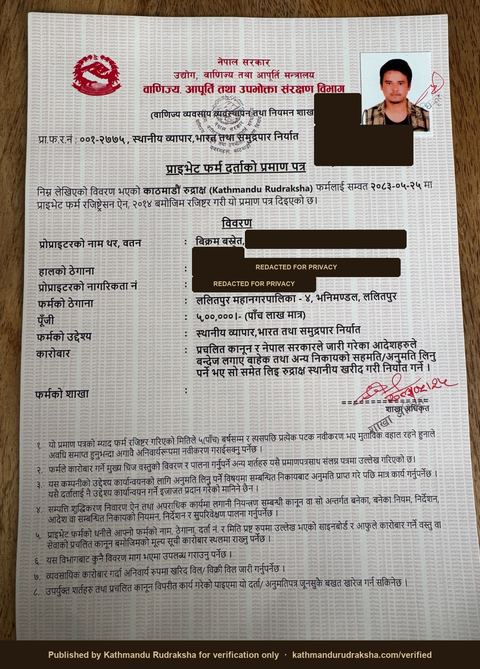 नेपाल सरकार
उद्योग, वाणिज्य तथा आपूर्ति मन्त्रालय
वाणिज्य, आपूर्ति तथा उपभोक्ता संरक्षण विभाग
(वाणिज्य व्यवसाय व्यवस्थापन तथा नियमन शाखा
प्रा.फ.र.नं : ००१-२७७५ , स्थानीय व्यापार,भारत तथा समुद्रपार निर्यात
प्राइभेट फर्म दर्ताको प्रमाण पत्र
निम्न लेखिएको विवरण भएको काठमाडौं रुद्राक्ष (Kathmandu Rudraksha) फर्मलाई सम्वत २०८३-०५-२५ मा
प्राइभेट फर्म रजिष्ट्रेसन ऐन, २०१४ बमोजिम रजिष्टर गरी यो प्रमाण पत्र दिइएको छ।
विवरण
प्रोप्राइटरको नाम थर, वतन : बिक्रम बस्नेत,
हालको ठेगाना : REDACTED FOR PRIVACY
प्रोप्राइटरको नागरिकता नं : REDACTED FOR PRIVACY
फर्मको ठेगाना : ललितपुर महानगरपालिका - ४, भनिमण्डल, ललितपुर
पूँजी : ५,००,०००।- (पाँच लाख मात्र)
फर्मको उद्देश्य : स्थानीय व्यापार,भारत तथा समुद्रपार निर्यात
कारोबार : प्रचलित कानून र नेपाल सरकारले जारी गरेका आदेशहरुले
बन्देज लगाए बाहेक तथा अन्य निकायको सहमति/अनुमति लिनु
पर्ने भए सो समेत लिइ रुद्राक्ष स्थानीय खरीद गरी निर्यात गर्न ।
फर्मको शाखा :
शाखा अधिकृत
१. यो प्रमाण पत्रको म्याद फर्म रजिष्टर गरिएको मितिले ५(पाँच) बर्षसम्म र त्यसपछि प्रत्येक पटक नवीकरण भए मुताविक वहाल रहने हुनाले
अवधि समाप्त हुनुभन्दा अगावै अनिवार्यरुपमा नवीकरण गराईसक्नु पर्नेछ ।
२. फर्मले कारोबार गर्ने मुख्य चिज वस्तुको विवरण र पालना गर्नुपर्ने अन्य शर्तहरु यसै प्रमाणपत्रसाथ संलग्न पत्रमा उल्लेख गरिएको छ।
३. यस कम्पनीको उद्देश्य कार्यान्वयनको लागि अनुमति लिनु पर्ने विषयमा सम्बन्धित निकायबाट अनुमति प्राप्त गरे पछि मात्र कार्य गर्नुपर्नेछ ।
यसै दर्तालाई नै उद्देश्य कार्यान्वयन गर्न इजाजत प्रदान गरेको मानिने छैन ।
४. सम्पत्ति शुद्धिकरण निवारण ऐन तथा अपराधिक कार्यमा लगानी नियन्त्रण सम्बन्धी कानून वा सो अन्तर्गत बनेका, बनेका नियम, निर्देशन,
आदेश वा सम्बन्धित निकायको नियमन, निर्देशन र सुपरिवेक्षण पालना गर्नुपर्नेछ ।
५. प्राइभेट फर्मको धनीले आफ्नो फर्मको नाम, ठेगाना, दर्ता नं. र मिति प्रष्ट रुपमा उल्लेख भएको साइनबोर्ड र आफुले कारोबार गर्ने वस्तु वा
सेवाको प्रचलित कानून बमोजिमको मूल्य सूची कारोबार स्थलमा राख्नु पर्नेछ ।
६. यस विभागबाट कुनै विवरण माग भएमा उपलब्ध गराउनु पर्नेछ ।
७. व्यवसायिक कारोबार गर्दा अनिवार्य रुपमा खरिद विल/ विक्री विल जारी गर्नुपर्नेछ ।
८. उपर्युक्त शर्तहरु तथा प्रचलित कानून विपरीत कार्य गरेको पाइएमा यो दर्ता/ अनुमतिपत्र जुनसुकै बखत खारेज गर्न सकिनेछ ।
Published by Kathmandu Rudraksha for verification only · kathmandurudraksha.com/verified